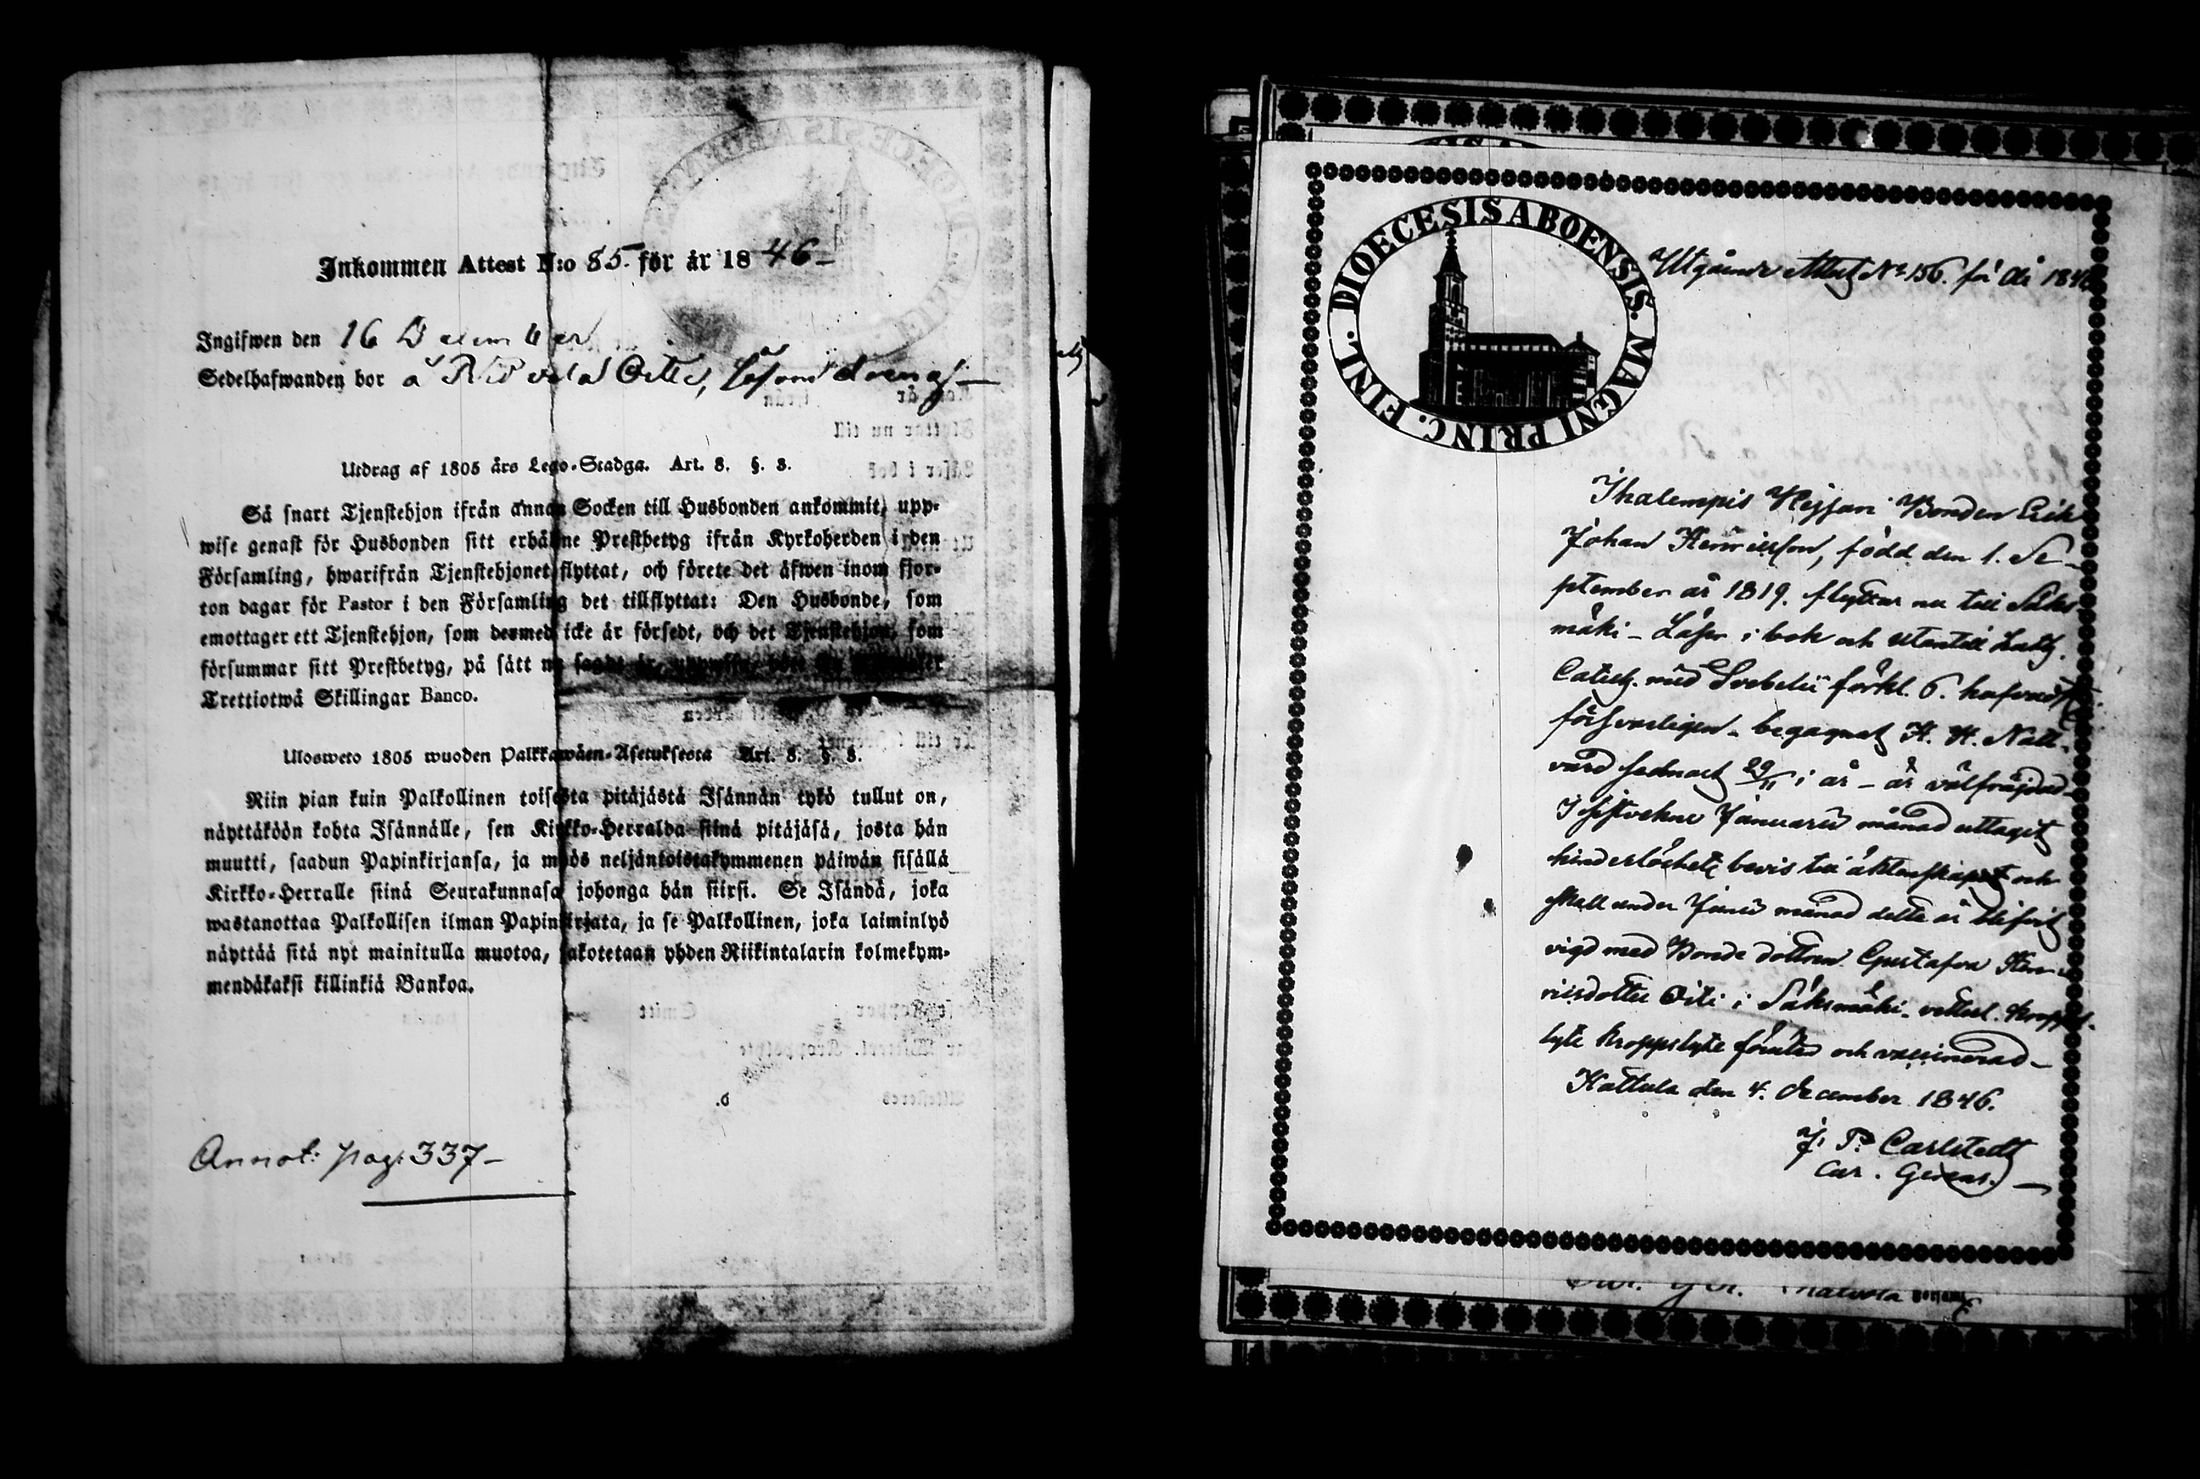 Inkommen Attest N:o 85. för år 1846 –
Ingifwen den 16 December
Sedelhafwanden bor å Ritvala Oite, såsom dräng –
Utdrag af 1805 års Lego-Stadga. Art. 8. §. 3.
Så snart Tjenstehjon ifrån annan Socken till Husbonden ankommit, upp-
wise genast för Husbonden sitt erhållne Prestbetyg ifrån Kyrkoherden i den
Församling, hwarifrån Tjenstehjonet flyttat, och förete det äfwen inom fjor-
ton dagar för Pastor i den Församling det tillflyttat: Den Husbonde, som
emottager ett Tjenstehjon, som dermed icke är försedt, och det Tjenstehjon, som
försummar sitt Prestbetyg, på sätt nu sagdt är,
Trettiotwå Skillingar Banco.
Ulosweto 1805 wuoden Palkkawäen-Asetuksesta Art. 8. §. 3.
Niin pian kuin Palkollinen toisesta pitäjästä Isännän tykö tullut on,
näyttäköön kohta Isännälle, sen Kirkko-Herralda siinä pitäjäsä, josta hän
muutti, saadun Papinkirjansa, ja myös neljäntoistakymmenen päiwän sisällä
Kirkko-Herralle siinä Seurakunnasa johonga hän siirsi. Se Isändä, joka
wastanottaa Palkollisen ilman Papinkirjata, ja se Palkollinen, joka laiminlyö
näyttää sitä nyt mainitulla muotoa, sakotetaan yhden Riikintalarin kolmekym-
mendäkaksi killinkiä Bankoa.
Annot: pag: 337 –
DIOECESIS ABOENSIS. MAGNI PRINC. FINL.
Utgående Attest No 156. för år 1846
Ihalempis Heyjari Bonden Erik
Johan Henricsson, född den 1. Se-
ptember år 1819. flyttar nu till Sääks
mäki – Läser i bok och utantill Luth.
Catech. med Svebelii förkl. 6. hufvudst.
försvarligen – begagnat H. H. Natt-
vard sednast 29/11 i år – är välfräjdad –
I sistvekne Januarii månad uttagit
hinderlöshets bevis till äktenskapet och
skall under Junii månad detta år blifvit
vigd med Bonde dottren Gustafva Hen-
ricsdotter Oiti i Sääksmäki –
lyte kroppslyte förutan och vaccinerad –
Hattula den 4. December 1846.
J. P. Carlstedt